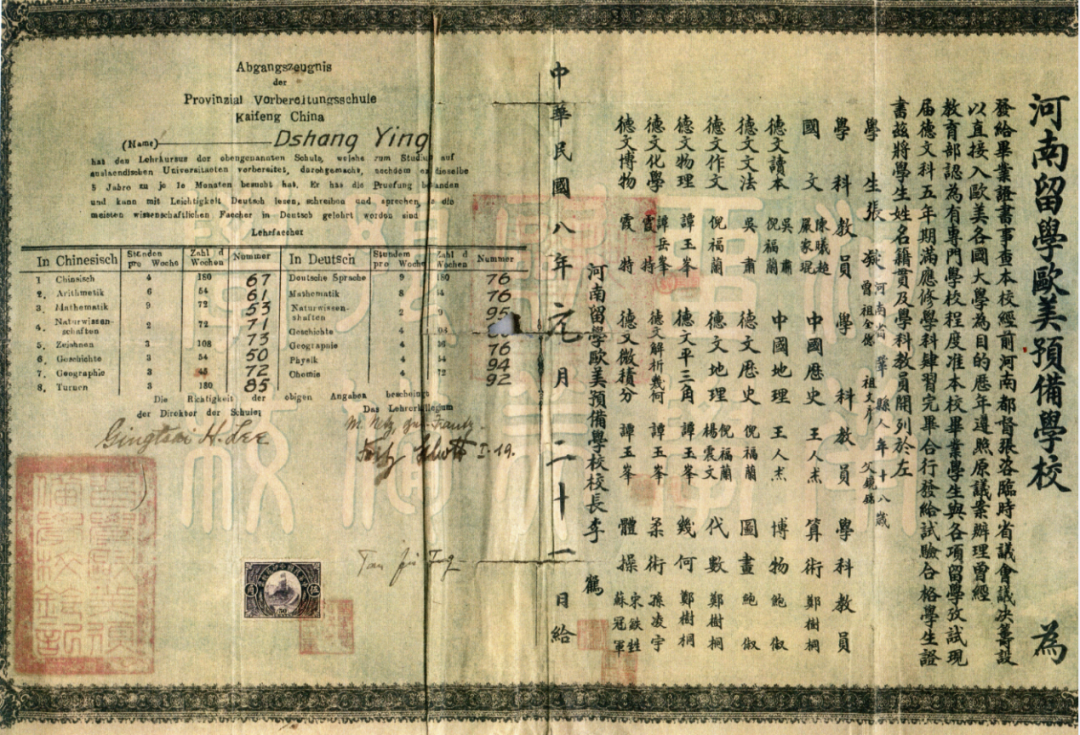 河南留學歐美預備學校 為
發給畢業證書事查本校經前河南都督張咨臨時省議會議決籌設
以直接入歐美各國大學為目的歷年遵照原議案辦理曾經
教育部認為有專門學校程度准本校畢業學生與各項留學攷試現
屆德文科五年期滿應修學科肄習完畢合行發給試驗合格學生證
書茲將學生姓名籍貫及學科教員開列於左
學生張 河南省 縣人年十八歲
曾祖全 祖文 父
學科 教員 學科 教員 學科 教員
國文 陳曦 嚴家 中國歷史 王人杰 算術 鄭樹桐
德文讀本 吳肅 倪福蘭 中國地理 王人杰 博物 鮑俶
德文文法 吳肅 德文歷史 倪福蘭 圖畫 鮑俶
德文作文 倪福蘭 德文地理 倪福蘭 楊震文 代數 鄭樹桐
德文物理 譚玉峯 德文平三角 譚玉峯 幾何 鄭樹桐
德文化學 譚岳峯 霞特 德文解析幾何 譚玉峯 柔術 孫凌宇
德文博物 霞特 德文微積分 譚玉峯 體操 宋 蘇冠軍
河南留學歐美預備學校校長李鶴
中華民國八年元月二十一日給
Abgangszeugnis
der
Provinzial Vorbereitungsschule
Kaifeng China
(Name) Dshang Ying
hat den Lehrkursus der obengenannten Schule, welche zum Studium auf
auslaendischen Universitaeten vorbereitet, durchgemacht, nachdem er dieselbe
5 Jahre zu je 10 Monaten besucht hat. Er hat die Pruefung bestanden
und kann mit Leichtigkeit Deutsch lesen, schreiben und sprechen, da die
meisten wissenschaftlichen Faecher in Deutsch gelehrt worden sind
Lehrfaecher
In Chinesisch Stunden pro Woche Zahl d Wochen Nummer In Deutsch Stunden pro Woche Zahl d Wochen Nummer
1 Chinesisch 4 180 67 Deutsche Sprache 9 180 76
2. Arithmetik 6 54 61 Mathematik 8 76
3. Mathematik 9 72 53 Naturwissenschaften 2 95
4. Naturwissenschaften 2 72 71 Geschichte 4
5. Zeichnen 3 108 73 Geographie 4 76
6. Geschichte 3 54 50 Physik 4 94
7. Geographie 3 72 Chemie 4 72 92
8. Turnen 3 180 85
Die Richtigkeit der obigen Angaben bescheinigt
der Direktor der Schule: Das Lehrerkollegium
Gingtsai H. Lee
I-19.